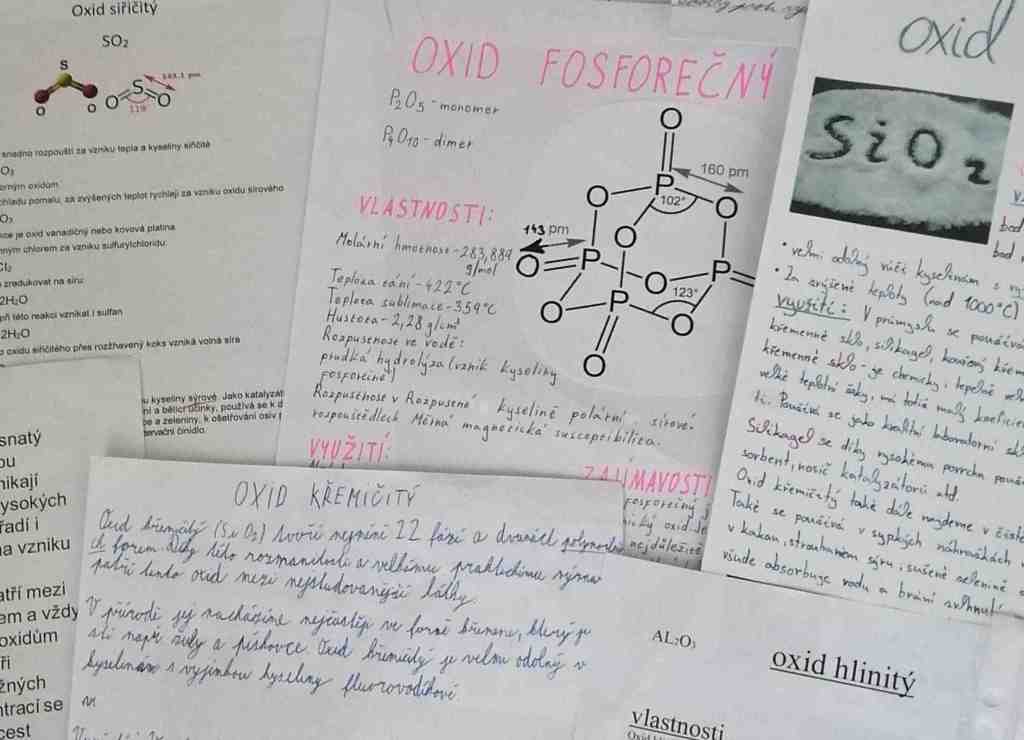 Oxid siřičitý
SO₂
S
O
O
143.1 pm
O S O
119
snadno rozpouští za vzniku tepla a kyseliny siřičité
O₃
orným oxidům
chladu pomalu, za zvýšených teplot rychleji za vzniku oxidu sírového
O₃
ce je oxid vanadičný nebo kovová platina.
nným chlorem za vzniku sulfurylchloridu:
Cl₂
zredukovat na síru:
2H₂O
při této reakci vznikat i sulfan
2H₂O
o oxidu siřičitého přes rozžhavený koks vzniká volná síra
u kyseliny sýrové. Jako katalyzát
ní a bělící účinky, používá se k d
be a zeleniny, k ošetřování osiv p
ervační činidlo.
snatý
ou
nikají
ysokých
řadí i
na vzniku
atří mezi
em a vždy
oxidům
ři
žných
ntrací se
cest
OXID FOSFOREČNÝ
P₂O₅ - monomer
P₄O₁₀ - dimer
VLASTNOSTI:
Molární hmotnost - 283,889
g/mol
Teplota tání - 422°C
Teplota sublimace - 359°C
Hustota - 2,28 g/cm³
Rozpustnost ve vodě:
prudká hydrolýza (vznik kyseliny
fosforečné)
Rozpustnost v Rozpusené kyselině polární sírové.
rozpouštědlech Měrná magnetická susceptibilita.
VYUŽITÍ:
ZAJÍMAVOSTI
fosforečný j
ický oxid je
nejdůležitě
O
P
160 pm
102°
O
O
143 pm
O
O
P
O
P
123°
O
P
O
O
oxid
SiO₂
bod
bod
• velmi odolný vůči kyselinám s vý
• Za zvýšené teploty (nad 1000°C)
využití: V průmyslu se používá
křemenné sklo, silikagel, kouřový křem
křemenné sklo - je chemicky, tepelně vel
velké teplotní šoky, má totiž malý koeficien
ti. Používá se jako kvalitní laboratorní skl
Silikagel se díky vysokému povrchu použí
sorbent, nosič katalyzátorů atd.
Oxid křemičitý také dále najdeme v čist
Také se používá v sypkých náhražkách
v kakau, strouhaném sýru, sušené zelenině a
všude absorbuje vodu a brání zvlhnutí
OXID KŘEMIČITÝ
Oxid křemičitý (SiO₂) tvoří nejméně 22 fází a dvanáct polymorfní
ch forem. Díky této rozmanitosti a velkému praktickému význa
patří tento oxid mezi nejstudovanější látky.
V přírodě jej nacházíme nejčastěji ve formě křemene, který je
stí např. žuly a pískovce. Oxid křemičitý je velmi odolný v
kyselinám s vyjímkou kyseliny fluorovodíkové.
AL₂O₃
oxid hlinitý
vlastnosti